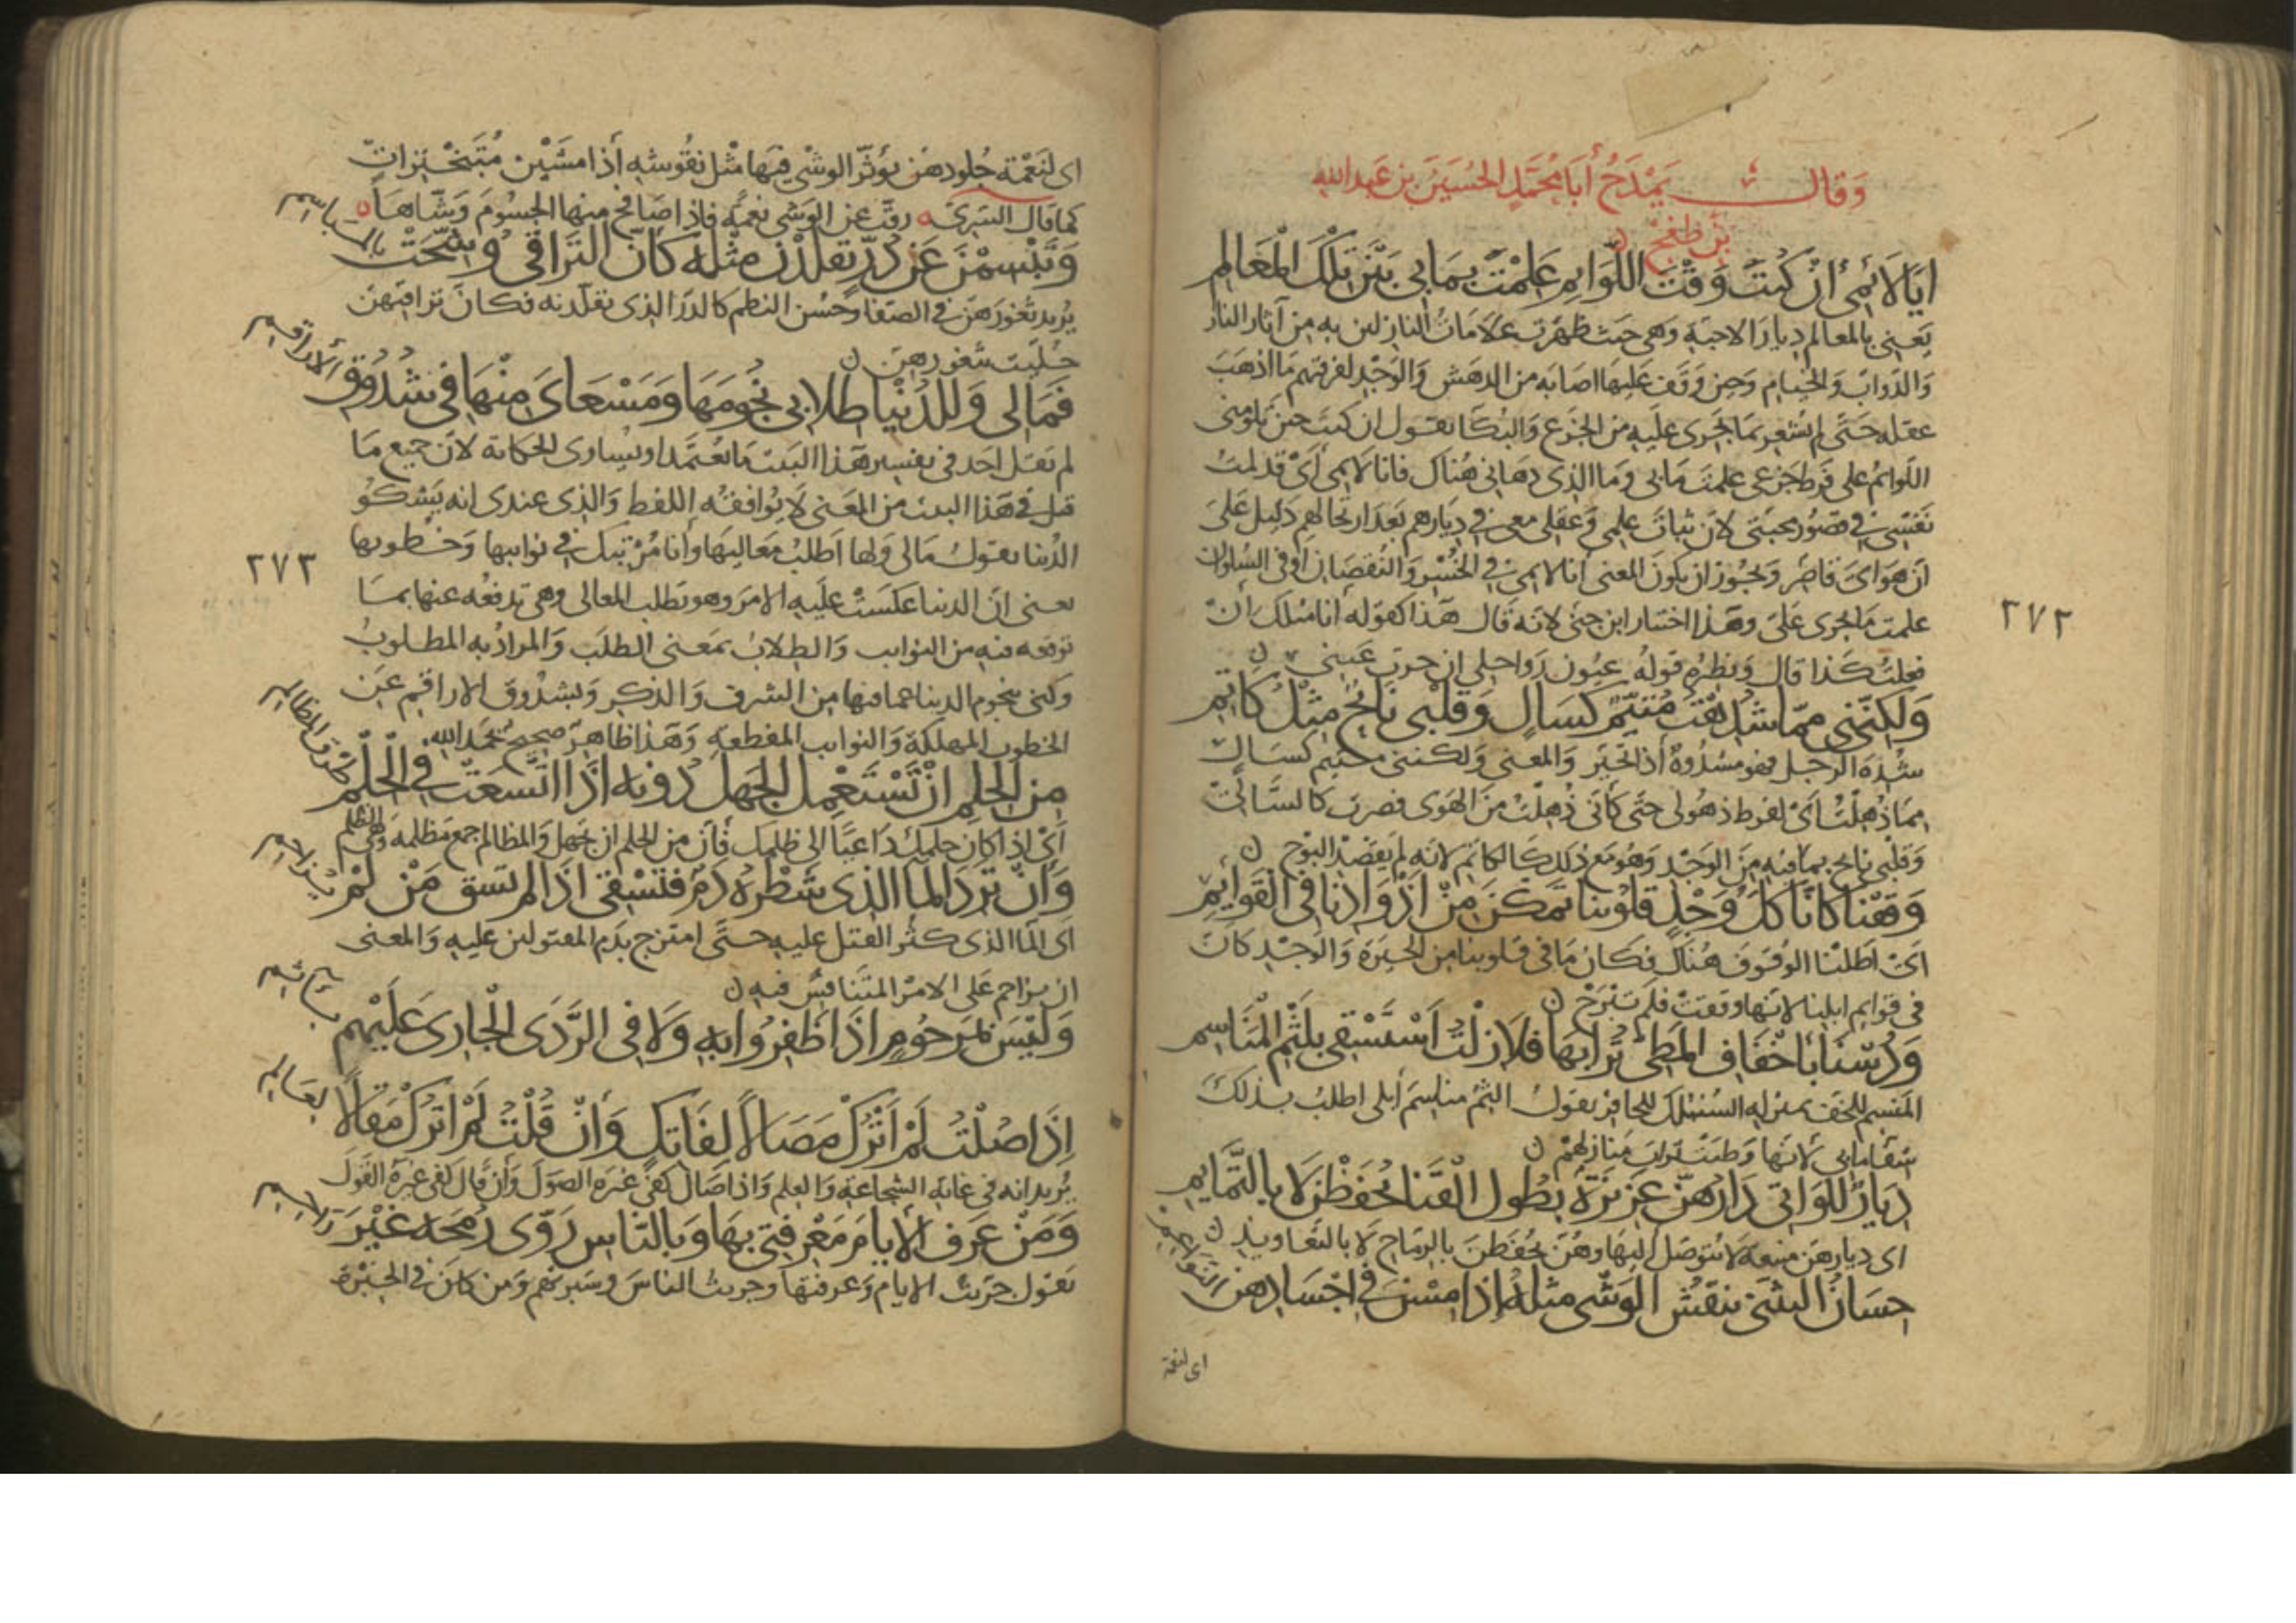 وَقَالَ يَمْدَحُ أَبَا مُحَمَّدٍ الْحُسَيْنَ بن عَبد الله
بْنِ طُغْجْ
اَيَا لَائِمِي اِنْ كُنْتَ وَقْتَ اللَّوَائِمِ عَلِمْتَ بِمَا بِي بَيْنَ تِلْكَ الْمَعَالِمِ
يَعني بالمعالم ديار الاحبة وهي حيث ظهرت علامات النازلين به من آثار النار
والدواب والخيام وحين وقف عليها اصابه من الدهش والوجد لفرقتهم ما اذهب
عقله حتى لم يشعر بما يجرى عليه من الجزع والبكا يقول ان كنت حين تلومنى
اللوائم على فرط جزعى علمت ما بي وما الذى دهانى هناك فانا لائمى اى قد لمت
نفسى في قصور محبتى لان ثبات علمى وعقلى معى في ديارهم بعد ارتحالهم دليل على
ان هواى قاصر ويجوز ان يكون المعنى انا لائمى في الخسر والنقصان او في السلوان
علمت ما يجرى على وهذا اختيار ابن جنى لانه قال هذا كقوله انا مثلك ان
فعلت كذا قال ونظيره قوله عيون رواحلى ان حرت عينى
وَلكِنَّنِي مِمَّا شُدِهْتُ مُتَيَّمٌ كَسَالٍ وَقَلْبِي بَائِحٌ مِثْلُ كَاتِمِ
شده الرجل فهو مشدوه اذا تحير والمعنى ولكننى متيم كسال
مما ذهلت اى لفرط ذهولى حتى كأنى ذهلت من الهوى فصرت كالسالى
وقلبى بائح بما فيه من الوجد وهو مع ذلك كالكاتم لانه لم يقصد البوح
وَقَفْنَا كَأَنَّا كُلُّ وَجْدِ قُلُوبِنَا تَمَكَّنَ مِنْ أَذْوَادِنَا فِي الْقَوَائِمِ
اى اطلنا الوقوف هناك فكان ما في قلوبنا من الحيرة والوجد كان
في قوائم ابلنا لانها وقفت فلم تبرح
وَدُسْنَا بِأَخْفَافِ الْمَطِيِّ تُرَابَهَا فَلَا زِلْتُ أَسْتَسْقِي بِلَثْمِ الْمَنَاسِمِ
المنسم للخف بمنزلة السنبك للحافر يقول الثم مناسم ابلى اطلب بذلك
شفا ما بى لانها وطئت تراب منازلهم
دِيَارُ اللَّوَاتِي دَارُهُنَّ عَزِيزَةٌ بِطُولِ الْقَنَا يُحْفَظْنَ لَا بِالتَّمَائِمِ
اى ديارهن منيعة لا يتوصل اليها وهن يحفظن بالرماح لا بالتعاويذ
حِسَانُ التَّثَنِّي يَنْقُشُ الْوَشْيُ مِثْلَهُ إِذَا مِسْنَ فِي اَجْسَادِهِنَّ النَّوَاعِمِ
اى لنعمة
٢٧٢
اى لنعمة جلودهن يؤثر الوشى فيها مثل نقوشه اذا مشين متبخترات
كما قال السرى رقت عن الوشى نعمة فاذا صافح منها الجسوم وشاها
وَيَبْسِمْنَ عَنْ دُرٍّ تَقَلَّدْنَ مِثْلَهُ كَأَنَّ التَّرَاقِي وُشِّحَتْ بِالْمَبَاسِمِ
يريد ثغورهن في الصفا وحسن النظم كالدر الذى تقلدنه فكان تراقيهن
حليت بثغورهن
فَمَا لِي وَلِلدُّنْيَا طِلَابِي نُجُومَهَا وَمَسْعَايَ مِنْهَا فِي شُدُوقِ الأَرَاقِمِ
لم يقل احد في تفسير هذا البيت ما يعتمد او يساوى الحكاية لان جميع ما
قيل في هذا البيت من المعنى لا يوافقه اللفظ والذى عندى انه يشكو
الدنيا يقول مالى ولها اطلب معاليها وانا مرتبك في نوائبها وخطوبها
يعنى ان الدنيا عكست عليه الامر وهو يطلب المعالى وهى تدفعه عنها بما
توقعه فيه من النوائب والطلاب بمعنى الطلب والمراد به المطلوب
وكنى بنجوم الدنيا عما فيها من الشرف والذكر وبشدوق الاراقم عن
الخطوب المهلكة والنوائب المفظعة وهذا ظاهر صحيح بحمد الله
مِنَ الْحِلْمِ اَنْ تَسْتَعْمِلَ الْجَهْلَ دُونَهُ اِذَا اتَّسَعَتْ فِي الْحِلْمِ طُرْقُ الْمَظَالِمِ
اى اذا كان حلمك داعيا الى ظلمك فان من الحلم ان تجهل والمظالم جمع مظلمة وهى الظلم
وَأَنْ تَرِدَ الْمَا الَّذِي شَطْرُهُ دَمٌ فَتُسْقَى اِذَا لَمْ يُسْقَ مَنْ لَمْ يُزَاحِمِ
اى الما الذى كثر القتل عليه حتى امتزج بدم المقتولين عليه والمعنى
ان يزاحم على الامر المتنافس فيه
وَلَيْسَ بِمَرْحُومٍ اِذَا ظَفِرُوا بِهِ وَلَا فِي الرَّدَى الْجَارِي عَلَيْهِم بِآثِمِ
اِذَا صُلْتُ لَمْ اَتْرُكْ مَصَالاً لِفَاتِكٍ وَاِنْ قُلْتُ لَمْ اَتْرُكْ مَقَالاً لِعَالِمِ
يريد انه في غاية الشجاعة والعلم واذا صال كفى غيره الصول وان قال كفى غيره القول
وَمَنْ عَرَفَ الأَيَّامَ مَعْرِفَتِي بِهَا وَبِالنَّاسِ رَوَّى رُمْحَهُ غَيْرَ رَاحِمِ
يقول جربت الايام وعرفتها وجربت الناس وسبرتهم ومن كان في الخبرة
٢٧٣